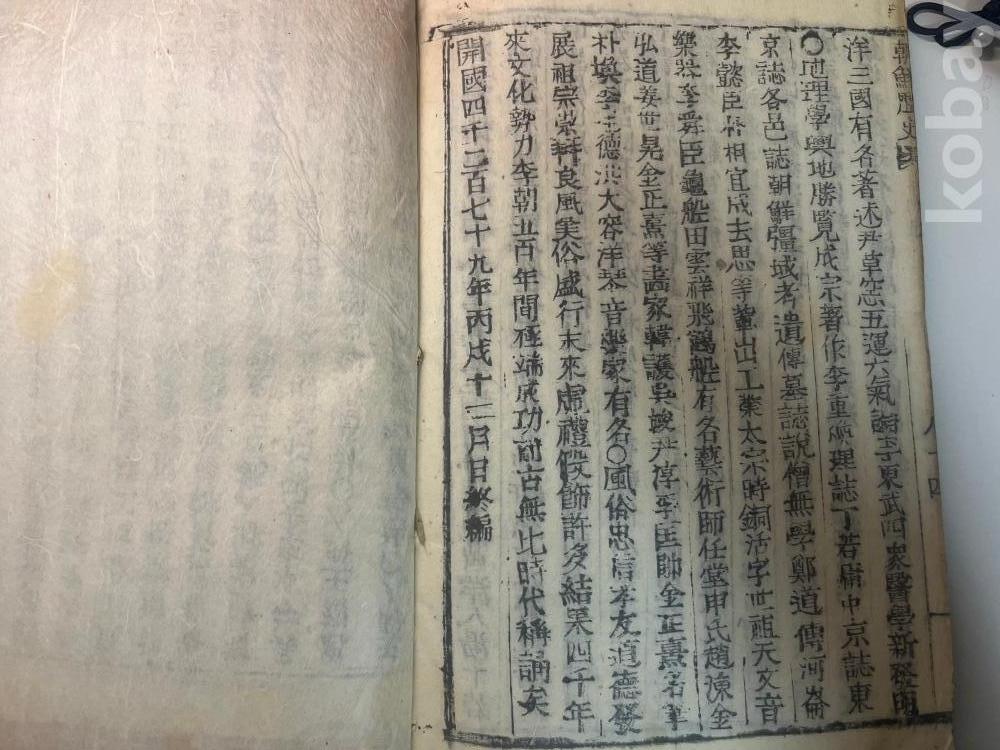 朝鮮歷史
洋三國有各著述尹草窓五運六氣論李東武四象醫學新發明
○地理學輿地勝覽成宗著作李重煥理誌丁若鏞中京誌東
京誌各邑誌朝鮮疆域考遺傳墓誌說僧無學鄭道傳河崙
李懿臣朴相宜成去思等輩出工業太宗時銅活字世祖天文音
樂器李舜臣龜船田雲祥飛鶴船有名藝術師任堂申氏趙涑金
弘道姜世晃金正熹等畵家韓護吳竣尹淳李匡師金正熹名筆
朴堧李德洪大容洋琴音樂家有名○風俗忠信孝友道德發
展祖宗崇拜良風美俗盛行末來虛禮假飾許多結果四千年
來文化勢力李朝五百年間極端成功前古無比時代稱謂矣
開國四千二百七十九年丙戌十二月日終編
八十四
koba